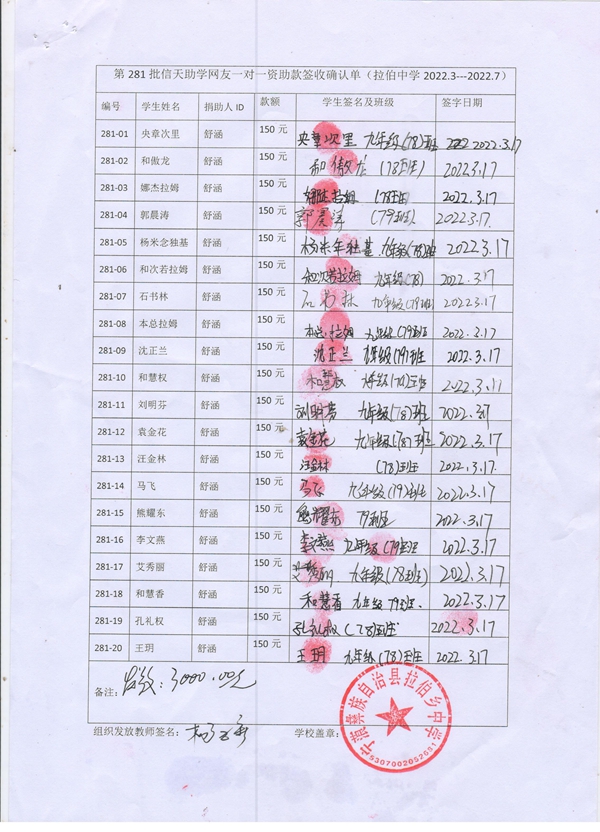 第 281 批信天助学网友一对一资助款签收确认单（拉伯中学 2022.3---2022.7）
编号 学生姓名 捐助人 ID 款额 学生签名及班级 签字日期
281-01 央章次里 舒涵 150 元 央章次里 九年级(78)班 2022.3.17
281-02 和傲龙 舒涵 150 元 和傲龙 (78班) 2022.3.17
281-03 娜杰拉姆 舒涵 150 元 娜杰拉姆 (78班) 2022.3.17
281-04 郭晨涛 舒涵 150 元 郭晨涛 (79班) 2022.3.17
281-05 杨米念独基 舒涵 150 元 九年级(78)班 2022.3.17
281-06 和次若拉姆 舒涵 150 元 和次若拉姆 九年级(78) 2022.3.17
281-07 石书林 舒涵 150 元 石书林 九年级(79)班 2022.3.17
281-08 本总拉姆 舒涵 150 元 本总拉姆 九年级(79)班 2022.3.17
281-09 沈正兰 舒涵 150 元 沈正兰 九年级(79)班 2022.3.17
281-10 和慧权 舒涵 150 元 和慧权 九年级
281-11 刘明芬 舒涵 150 元 刘明芬 九年级(78)班
281-12 袁金花 舒涵 150 元 袁金花 九年级(78)班 2022.3.17
281-13 汪金林 舒涵 150 元 汪金林 (78)班 2022.3.17
281-14 马飞 舒涵 150 元 马飞 九年级(79)班 2022.3.17
281-15 熊耀东 舒涵 150 元 熊耀东 79班 2022.3.17
281-16 李文燕 舒涵 150 元 李文燕 九年级(79)班 2022.3.17
281-17 艾秀丽 舒涵 150 元 九年级(78班) 2022.3.17
281-18 和慧香 舒涵 150 元 和慧香 九年级 79班. 2022.3.17
281-19 孔礼权 舒涵 150 元 孔礼权 (78)班 2022.3.17
281-20 王玥 舒涵 150 元 王玥 九年级(78)班 2022.3.17
备注： 3000.00元
组织发放教师签名： 学校盖章：
宁蒗彝族自治县拉伯乡中学
5307002052651